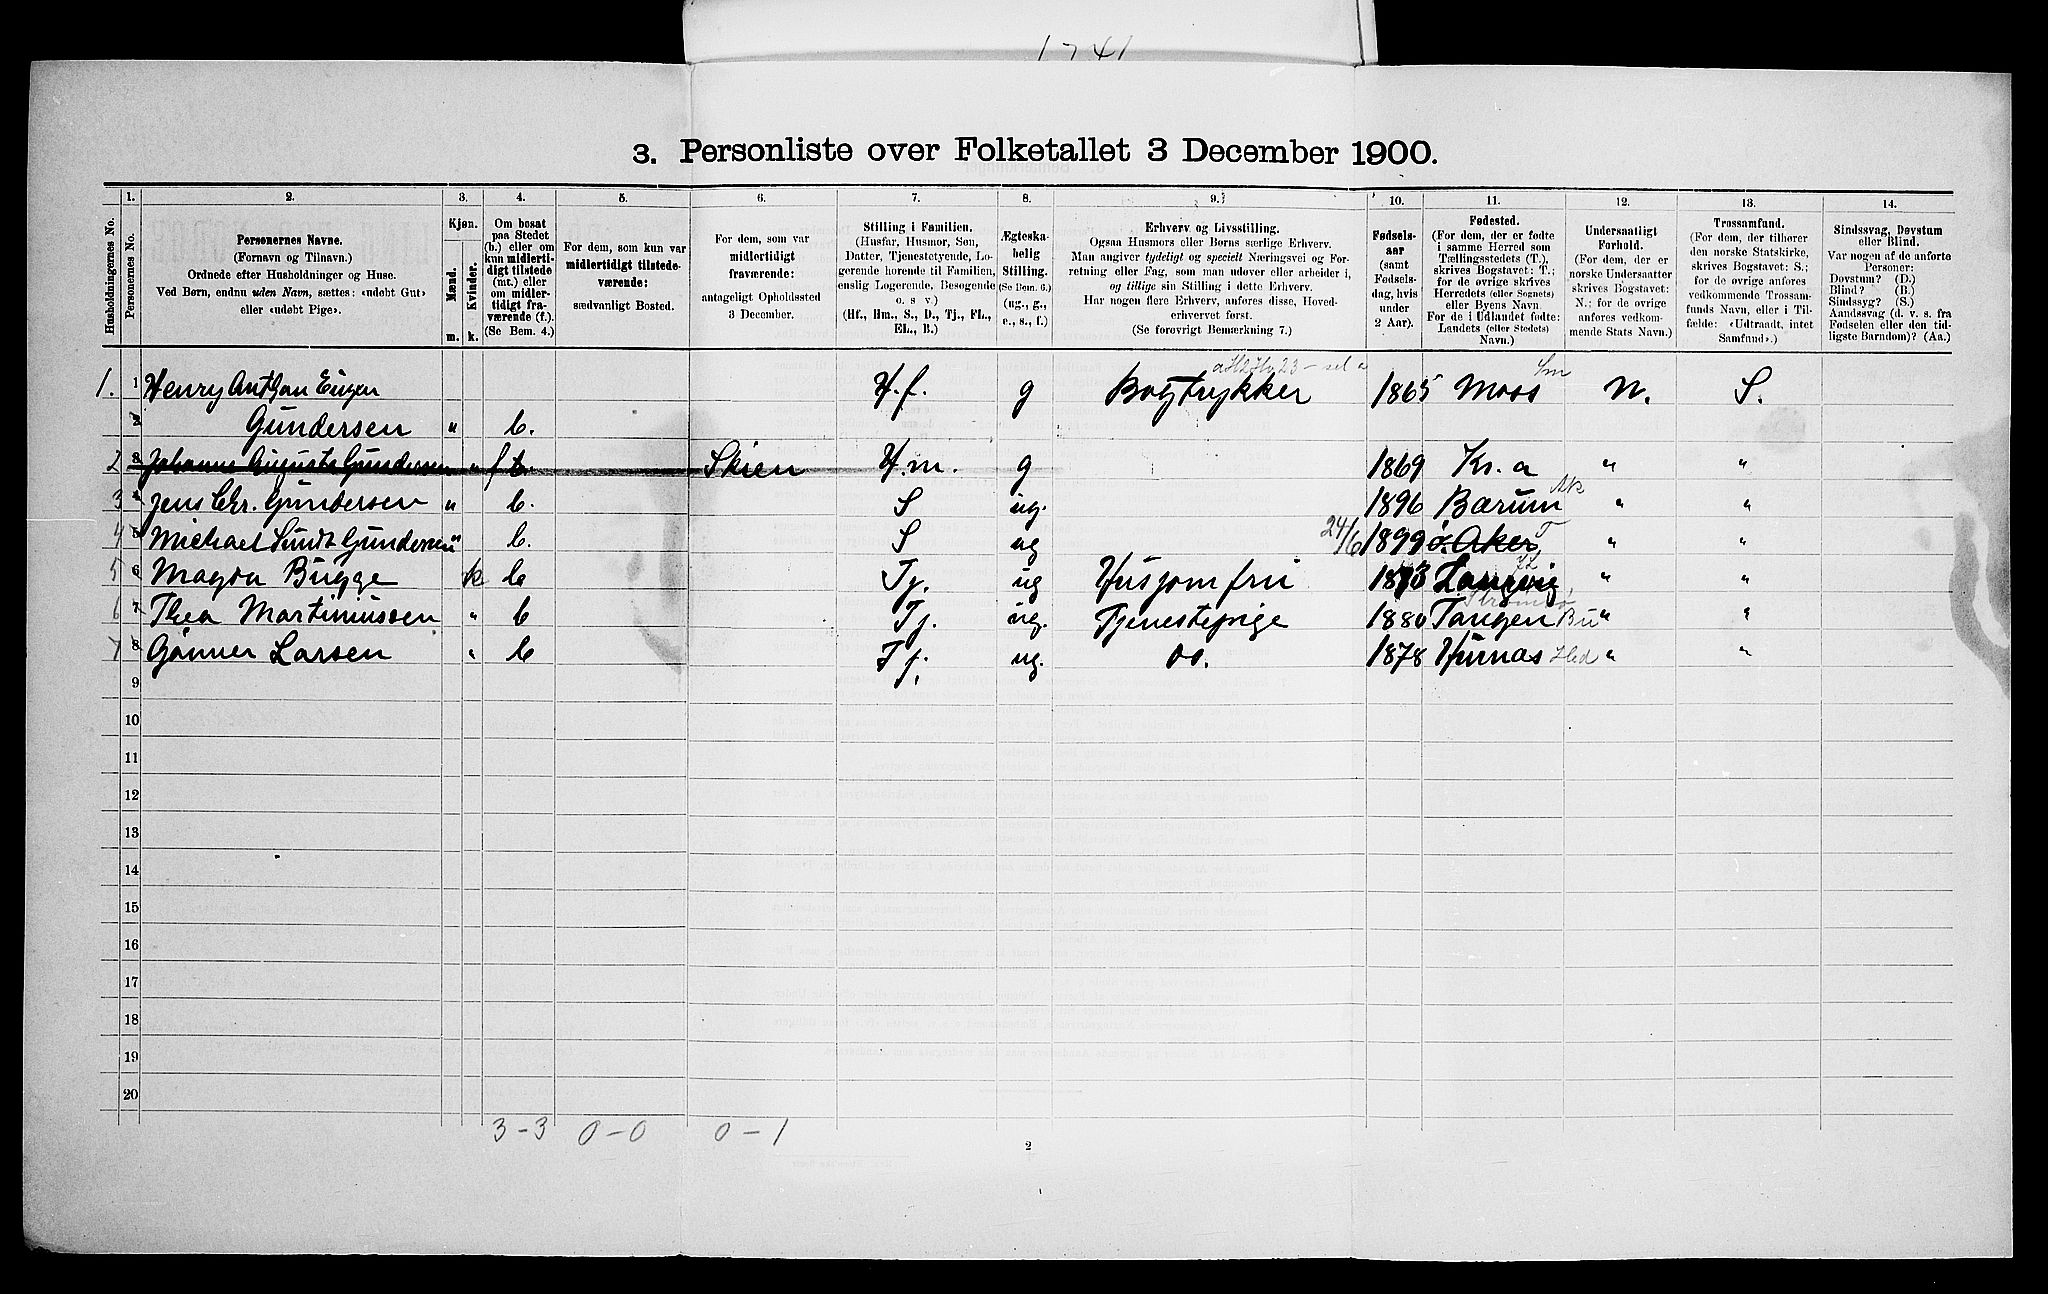 1741
3. Personliste over Folketallet 3 December 1900.
1. 2. 3. 4. 5. 6. 7. 8. 9. 10. 11. 12. 13. 14.
Husholdningernes No.
Personernes No.
Personernes Navne.
(Fornavn og Tilnavn).
Ordnede efter Husholdninger og Huse.
Ved Børn, endnu uden Navn, sættes: «udøbt Gut»
eller «udøbt Pige».
Kjøn.
Mænd.
Kvinder.
m. k.
Om bosat
paa Stedet
(b.) eller om
kun midlerti-
digt tilstede
(mt.) eller
om midler-
tidigt fra-
værende (f.)
(Se Bem. 4.)
For dem, som kun var
midlertidigt tilstede-
værende:
sædvanligt Bosted.
For dem, som var
midlertidigt
fraværende:
antageligt Opholdssted
3 December.
Stilling i Familien.
(Husfar, Husmor, Søn,
Datter, Tjenestetyende, Lo-
gerende hørende til Familien,
enslig Logerende, Besøgende
o. s v.)
(Hf., Hm., S., D., Tj., FL.,
EL., B.)
Ægteska-
belig
Stilling.
(Se Bem. 6.)
(ug., g.,
e., s., f.)
Erhverv og Livsstilling.
Ogsaa Husmors eller Børns særlige Erhverv.
Man angiver tydeligt og specielt Næringsvei og For-
retning eller Fag, som man udøver eller arbeider i,
og tillige sin Stilling i dette Erhverv.
Har nogen flere Erhverv, anføres disse, Hoved-
erhvervet først.
(Se forøvrigt Bemærkning 7.)
Fødsels-
aar
(samt
Fødsels-
dag, hvis
under
2 Aar).
Fødested.
(For dem, der er fødte
i samme Herred som
Tællingsstedets (T.),
skrives Bogstavet: T.;
for de øvrige skrives
Herredets (eller Sognets)
eller Byens Navn.
For de i Udlandet fødte:
Landets (eller Stedets)
Navn.)
Undersaatligt
Forhold.
(For dem, der er
norske Undersaatter
skrives Bogstavet:
N.; for de øvrige
anføres vedkom-
mende Stats Navn.)
Trossamfund.
(For dem, der tilhører
den norske Statskirke,
skrives Bogstavet: S.;
for de øvrige anføres
vedkommende Trossam-
funds Navn, eller i Til-
fælde: «Udtraadt, intet
Samfund».)
Sindssvag, Døvstum
eller Blind.
Var nogen af de anførte
Personer:
Døvstum? (D.)
Blind? (B.)
Sindssyg? (S.)
Aandssvag (d. v. s. fra
Fødselen eller den tid-
ligste Barndom)? (Aa.)
1. 1 Henry Anthon Eugen H.f. g Bogtrykker 1865 Moss Sm N. S.
2 Gundersen " b.
2 3 Johanne Augusta Gundersen " f b. Skien H.m. g 1869 Kr.a " "
3 4 Jens Chr. Gundersen " b. S ug. 1896 Bærum Ak " "
4 5 Michael Sundt Gundersen " b. S ug 24/6 1899 ø. Aker T " "
5 6 Magda Bugge k b Tj. ug Husjomfru 1873 Langvig " "
6 7 Thea Martiniussen " b Tj. ug. Tjenestepige 1880 Tangen Strømsø Bu " "
7 8 Gunner Larsen " b Tj. ug. do. 1878 Hurnas Hed " "
9
10
11
12
13
14
15
16
17
18
19
20
3 - 3 0 - 0 0 - 1
2